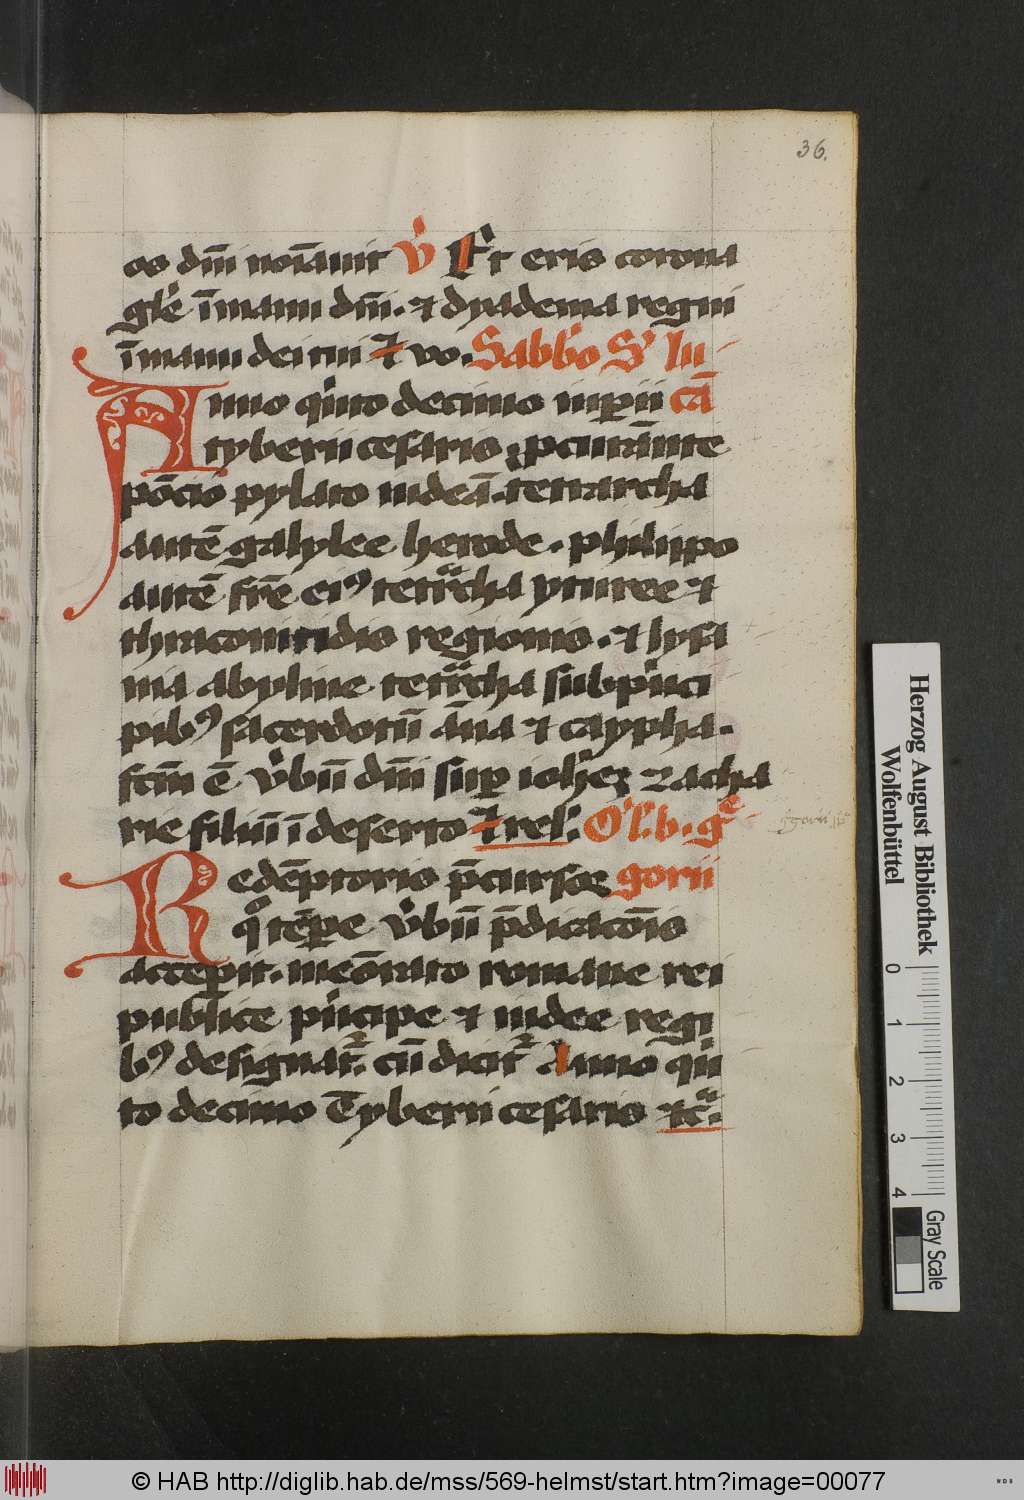 36.
os dn̄i noīauit v̇ Et eris corona
gl̉e ī manu dn̄i. ⁊ dyadema regni
ī manu dei tui ⁊ vo. Sabb̉o S' lu
Anno qͥnto decimo inꝑii cā
tyberii cesaris ꝓcurāūte
pōcio pylato iudeā. tetrarcha
autē galylee herode. philippo
autē fr̄e eiꝰ tetrͣrcha yturee ⁊
thraconitidis regionis. ⁊ lysa
nia abyline tetrͣrcha sub pͥnci
pibꝰ sacerdotū āna ⁊ caypha.
fctm̄ ē v̉bū dn̄i suꝑ ioh̉eꝫ zacha
rie filiū ī deserto ⁊ rel̉. Om̉l. b. gͤ
gorii
Redēptoris p̄cursor
qͦ tēꝑe v̉bū p̄dicatōis
accepit. meōrato romane rei
publice pͥncipe ⁊ iudee regi
bꝰ designatͬ. cū dicitͬ Anno qͥn
to decimo Tyberii cesaris ⁊cͣ.
Herzog August Bibliothek
Wolfenbüttel
0 1 2 3 4
Gray Scale
© HAB http://diglib.hab.de/mss/569-helmst/start.htm?image=00077